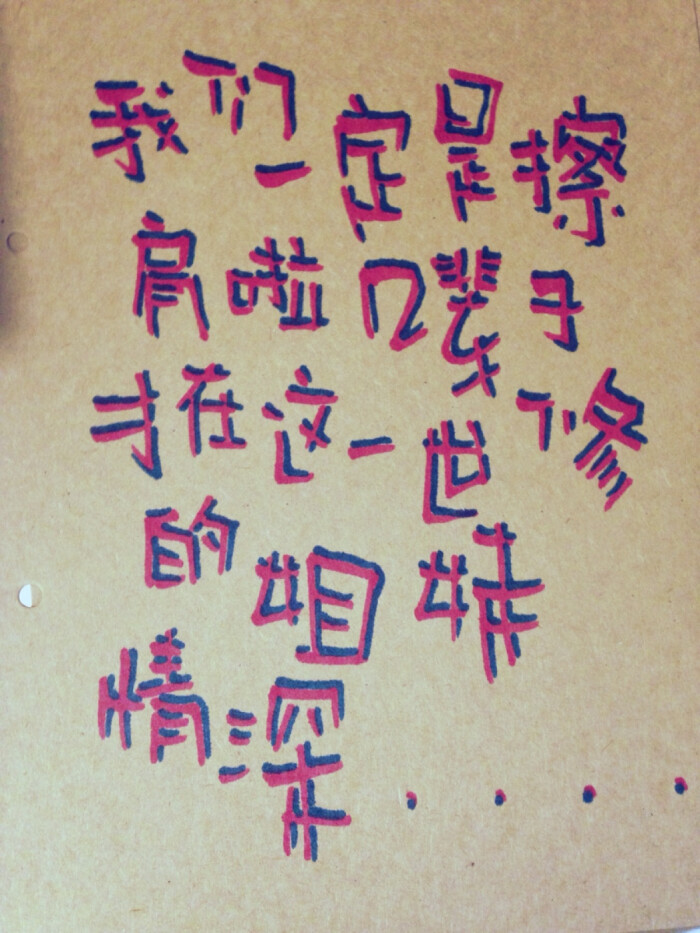 我们一定是擦
肩啦几辈子
才在这一世修
的姐妹
情深....